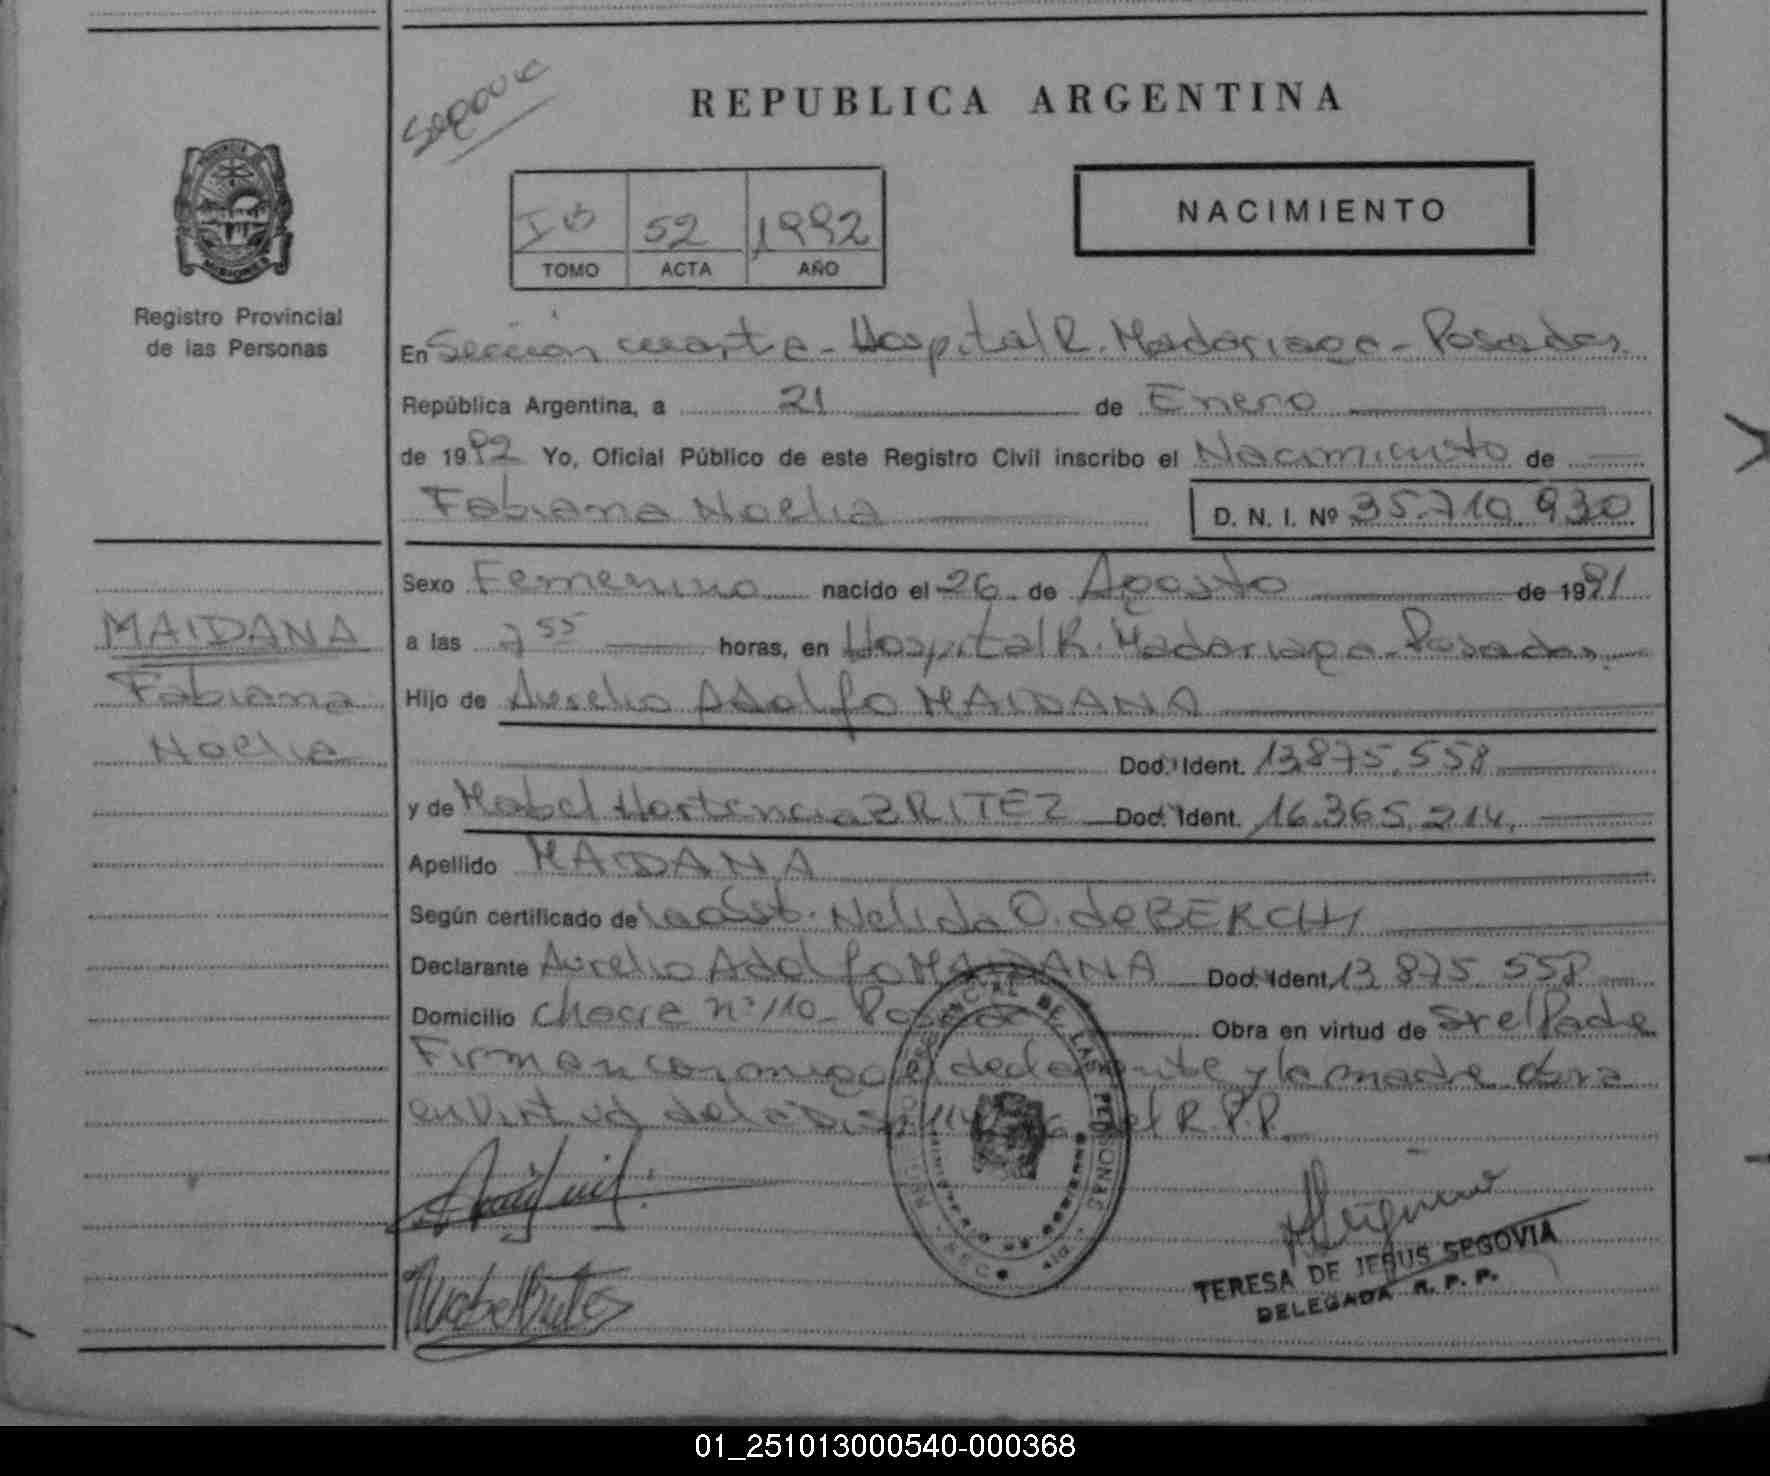 REPUBLICA ARGENTINA
NACIMIENTO
52 1992
TOMO ACTA AÑO
PROVINCIA DE
MISIONES
Registro Provincial
de las Personas
En Sección cuarta - Hospital R. Madariaga - Posadas
República Argentina, a 21 de Enero
de 1992 Yo, Oficial Público de este Registro Civil inscribo el Nacimiento de
Fabiana Noelia
D. N. I. Nº 35.710.930
MAIDANA
Fabiana
Noelia
Sexo Femenino nacido el 26 de Agosto de 1991
a las 7 55 horas, en Hospital R. Madariaga - Posadas
Hijo de Aurelio Adolfo MAIDANA
Doc. Ident. 13.875.558
y de Mabel Hortencia BRITEZ Doc. Ident. 16.365.214
Apellido MAIDANA
Según certificado de la obst. Nelida O. de BERCHI
Declarante Aurelio Adolfo MAIDANA Doc. Ident. 13.875.558
Domicilio chacra nº 110 - Posadas Obra en virtud de
Firman conmigo el declarante y la madre obra
en virtud de la del R.P.P.
TERESA DE JESUS SEGOVIA
DELEGADA R. P. P.
01_251013000540-000368